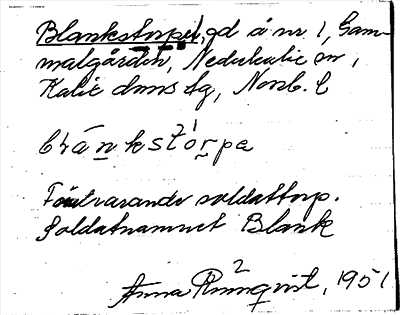 Blankstorpet, gd å nr 1, Gam-
malgården, Nederkalix sn,
Kalix dmstg, Norrb. l
blánkstòrpe
Förutvarande soldattorp.
Soldatnamnet Blank
Anna Rönnqvist, 1951